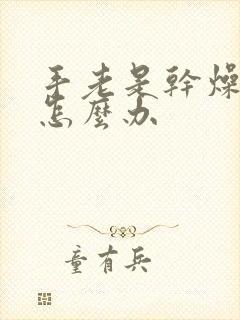 手老是幹燥
怎麼办
童有兵